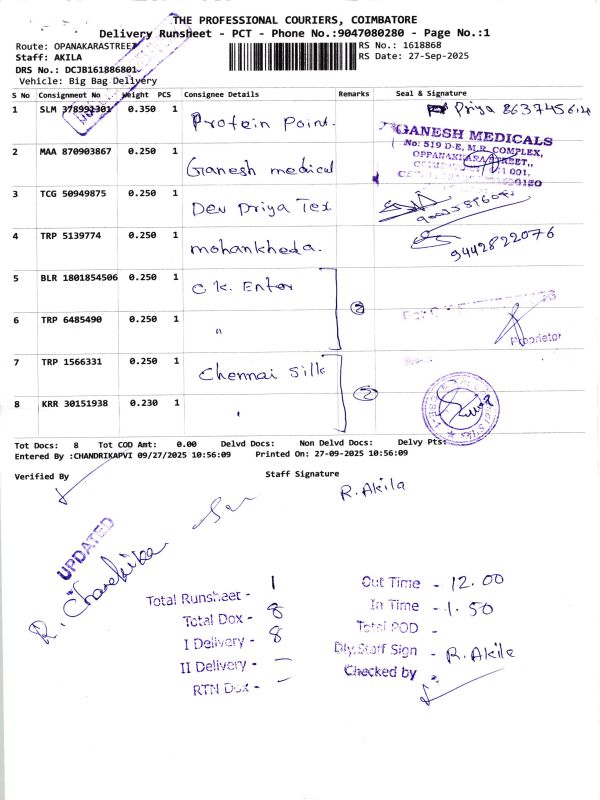 THE PROFESSIONAL COURIERS, COIMBATORE
Delivery Runsheet - PCT - Phone No.:9047080280 - Page No.:1
Route: OPANAKARASTREET RS No.: 1618868
Staff: AKILA RS Date: 27-Sep-2025
DRS No.: DCJB161886801
Vehicle: Big Bag Delivery
S No Consignment No Weight PCS Consignee Details Remarks Seal & Signature
1 SLM 378992301 0.350 1 Protein Point. Priya
2 MAA 870903867 0.250 1 Ganesh medical
GANESH MEDICALS
No: 519 D-E, M.R. COMPLEX,
OPPANAKKARA STREET,
3 TCG 50949875 0.250 1 Dev Priya Tex.
4 TRP 5139774 0.250 1 mohankheda. 9442822076
5 BLR 1801854506 0.250 1 C.K. Enter
6 TRP 6485490 0.250 1 " ②
Proprietor
7 TRP 1566331 0.250 1 Chennai Silk
8 KRR 30151938 0.230 1 " ②
Tot Docs: 8 Tot COD Amt: 0.00 Delvd Docs: Non Delvd Docs: Delvy Pts:
Entered By :CHANDRIKAPVI 09/27/2025 10:56:09 Printed On: 27-09-2025 10:56:09
Verified By Staff Signature
R.Akila
UPDATED
R. Chandrika
Total Runsheet - 1
Total Dox - 8
I Delivery - 8
II Delivery - –
RTN Dox - –
Out Time - 12.00
In Time - 1.50
Total POD -
Dly.Staff Sign - R.Akila
Checked by -